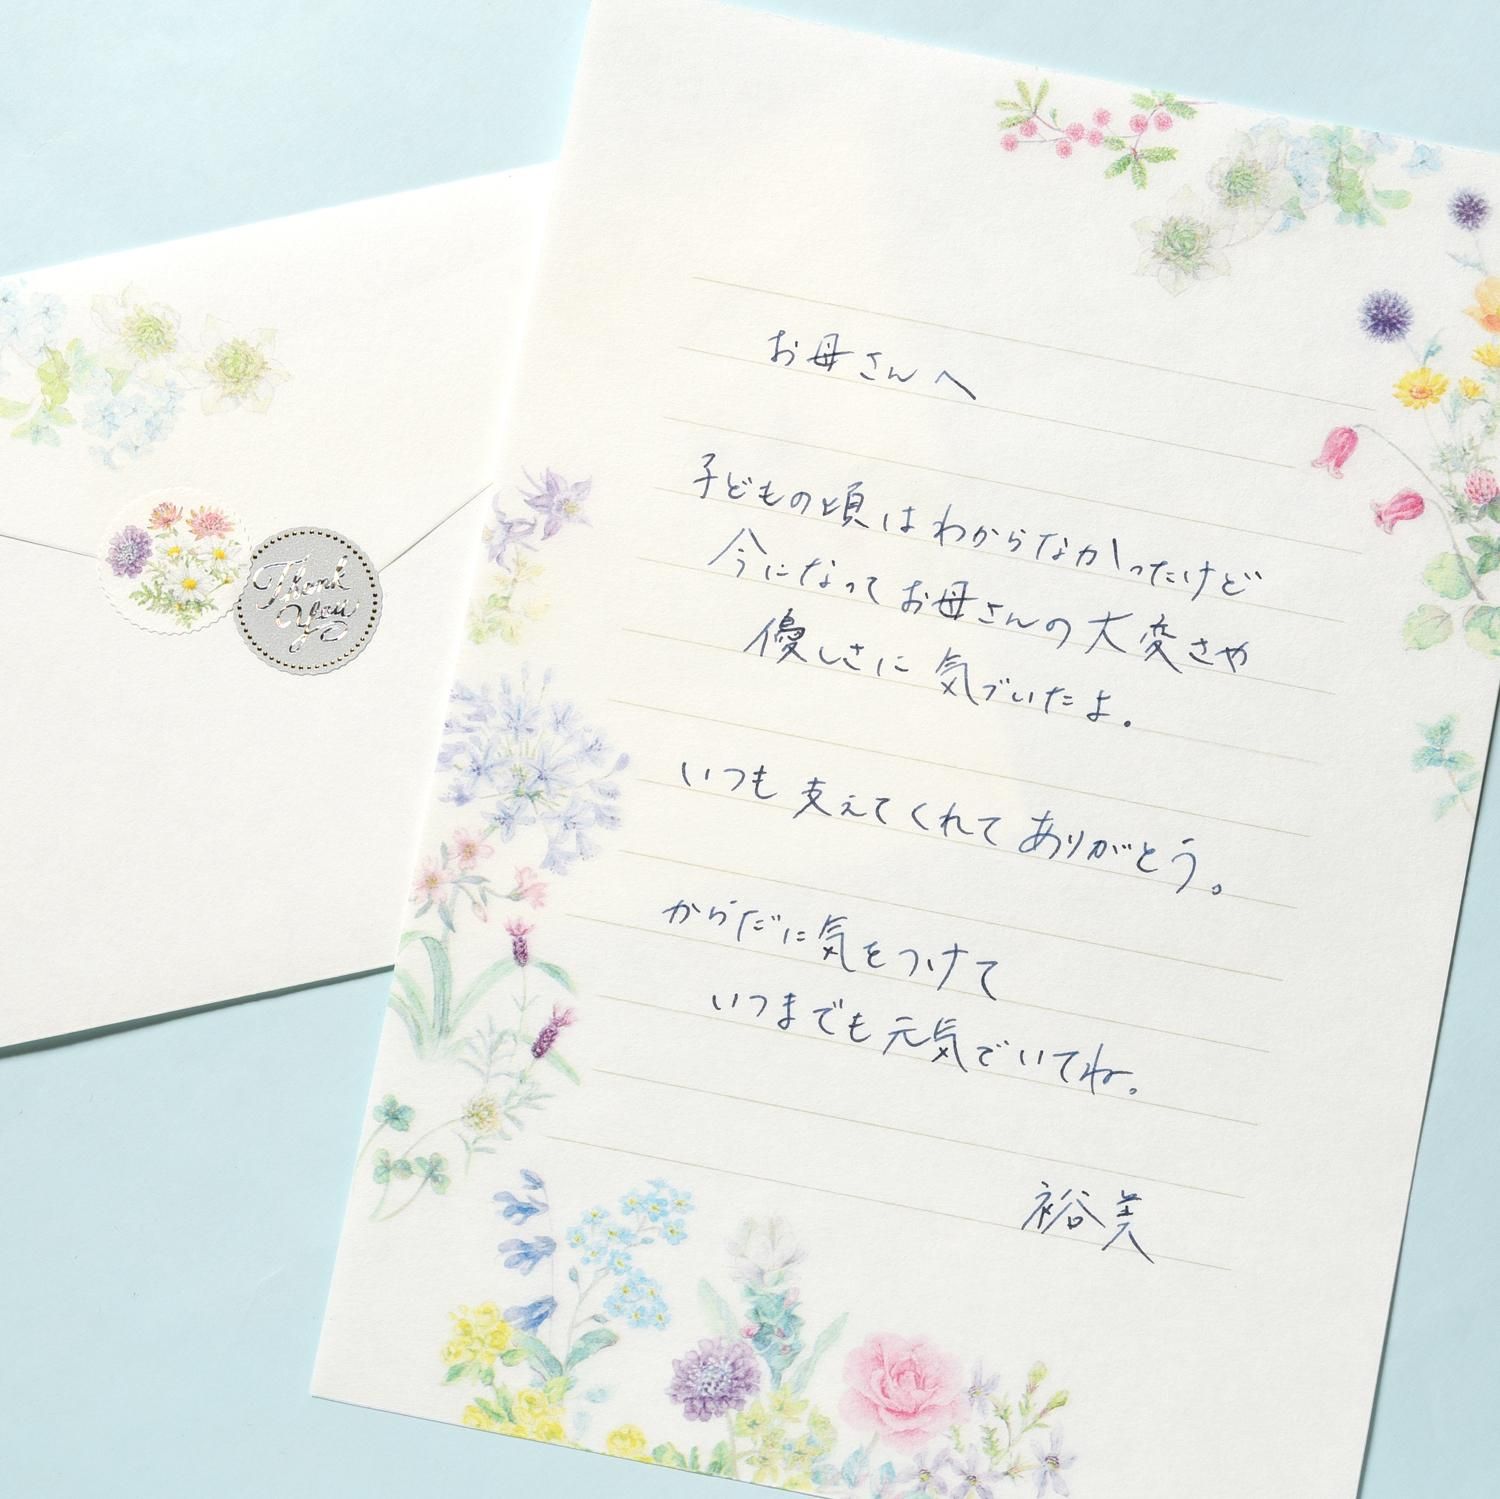 Thank
You
お母さんへ
子どもの頃はわからなかったけど
今になってお母さんの大変さや
優しさに気づいたよ。
いつも支えてくれてありがとう。
からだに気をつけて
いつまでも元気でいてね。
裕美